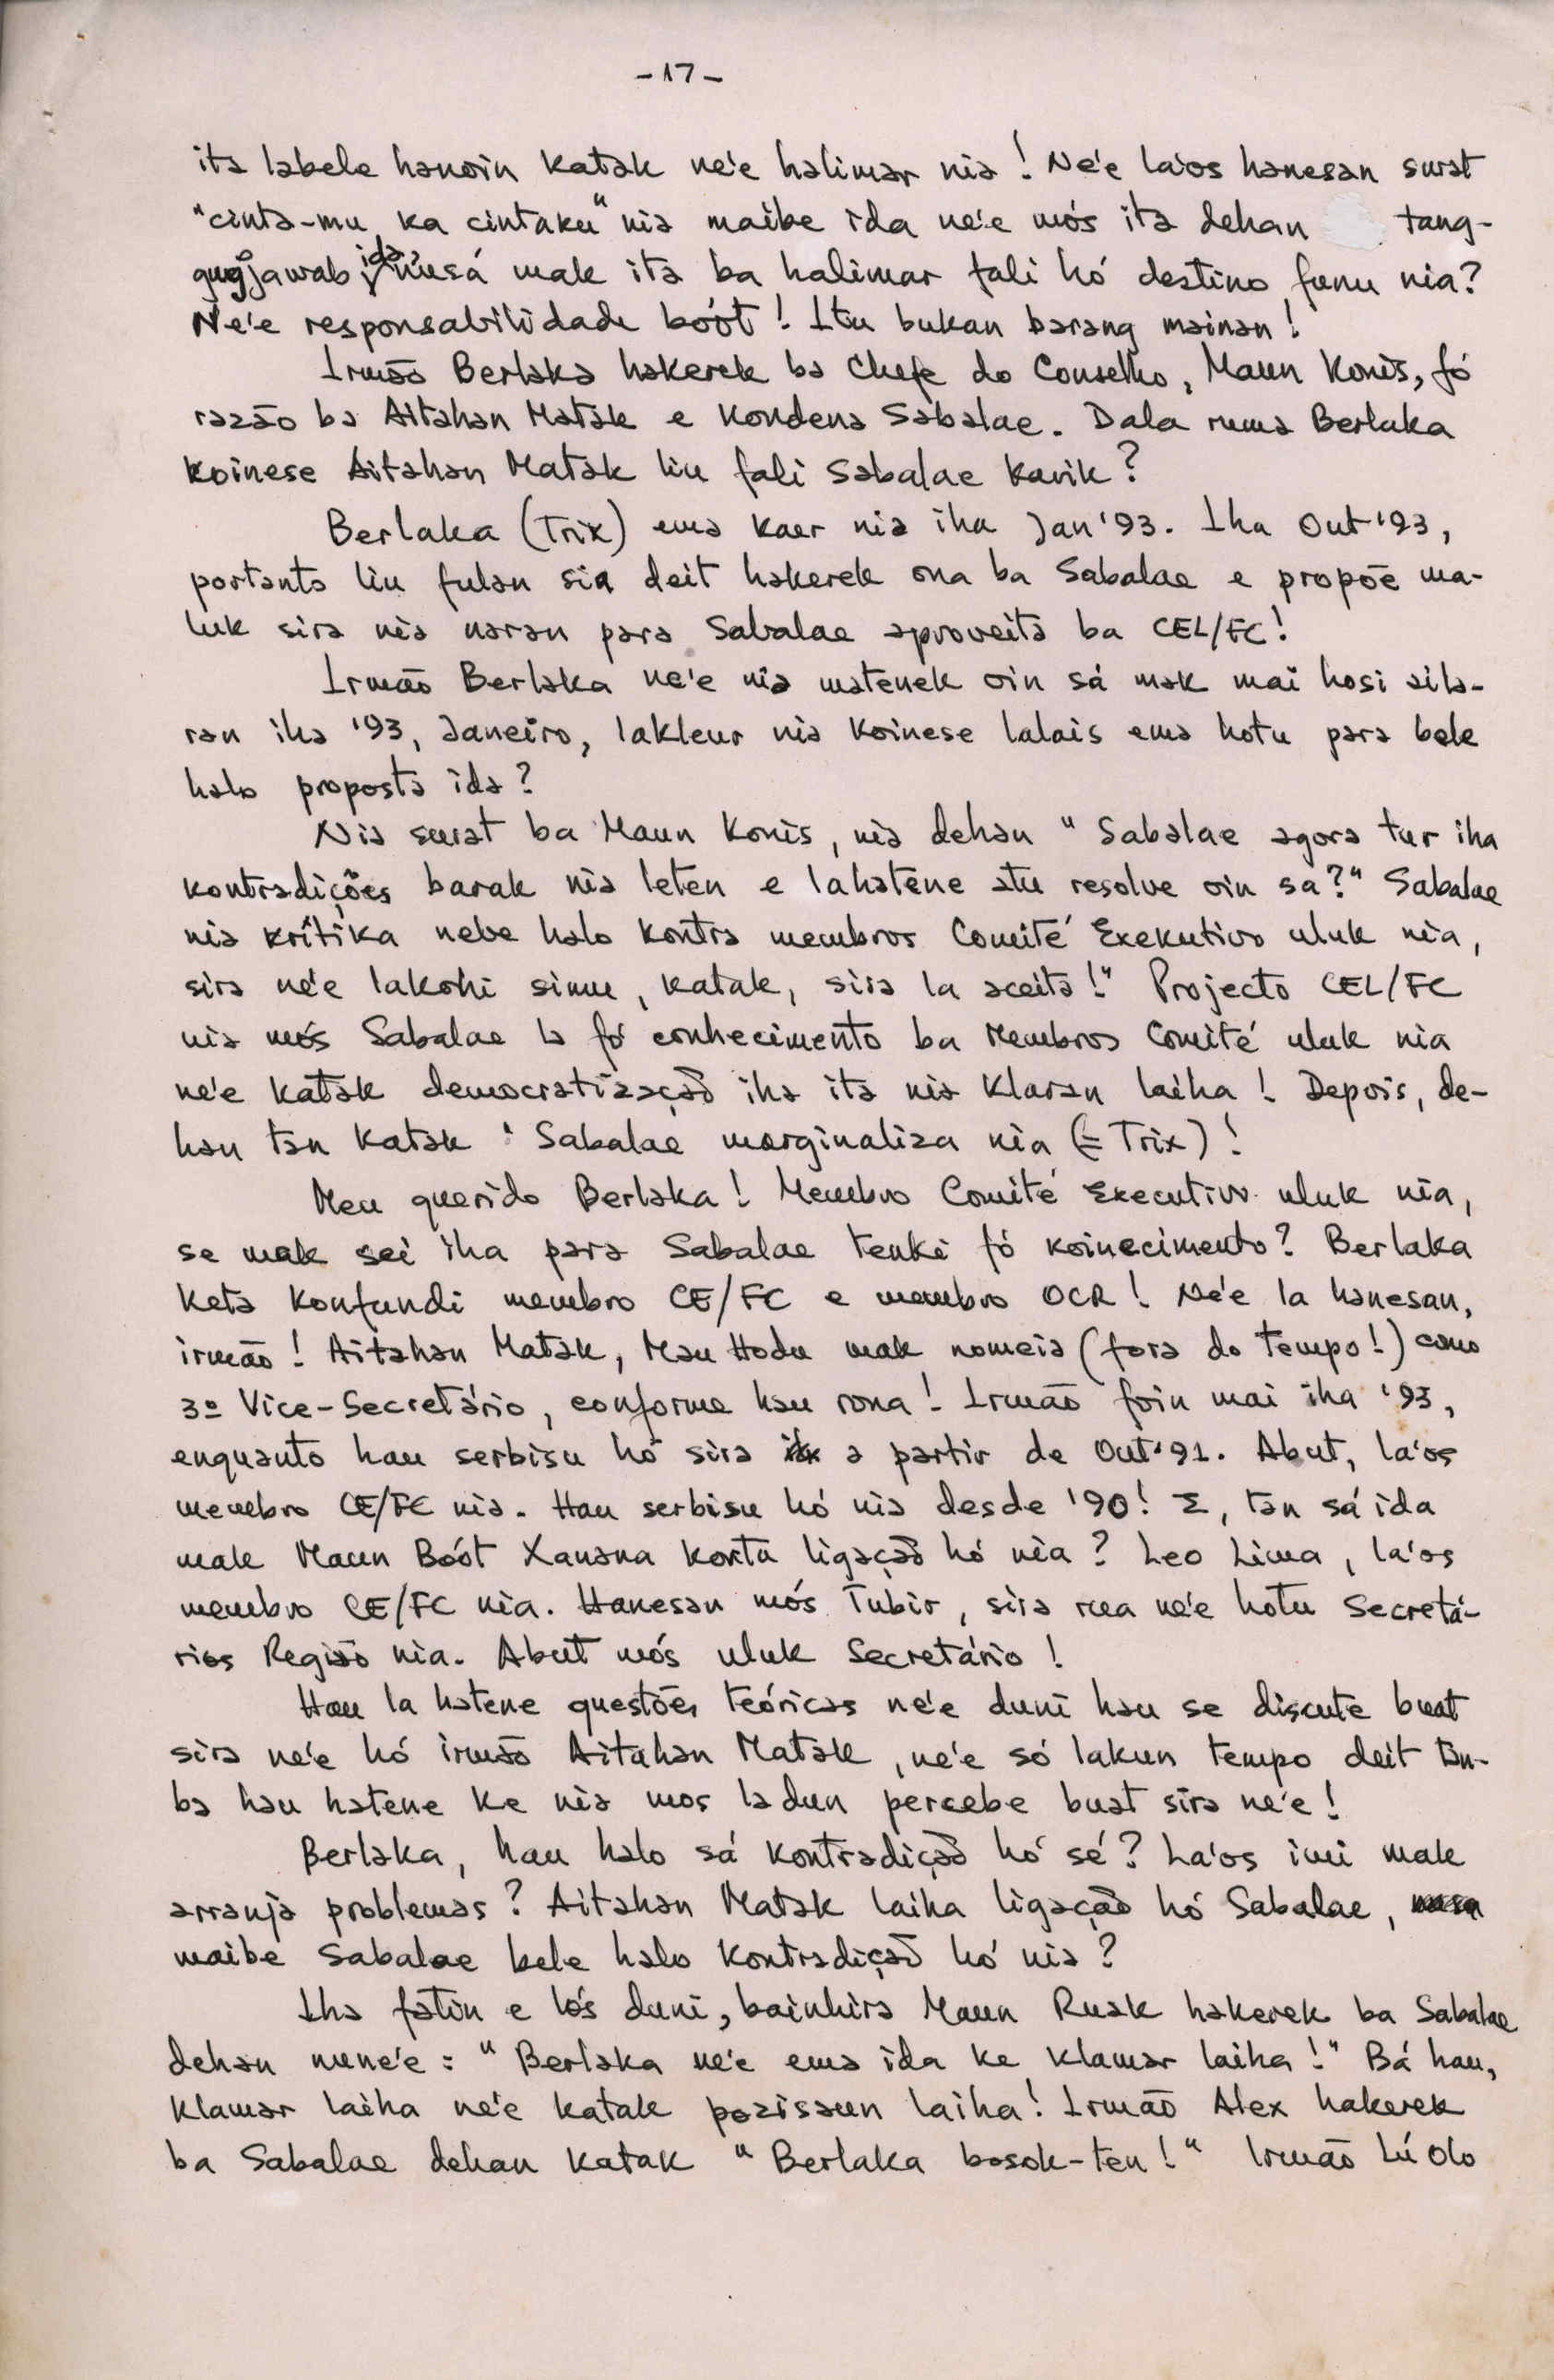 -17-
ita labele hanoin katak ne'e halimar nia! Ne'e la'os hanesan surat
"cinta-mu ka cintaku" nia maibe ida ne'e mós ita dehan tang-
gugjawab ida, nusá mak ita ba halimar fali hó destino funu nia?
Ne'e responsabilidade bóót! Itu bukan barang mainan!
Irmão Berlaka hakerek ba Chefe do Conselho, Maun Konis, fó
razão ba Aitahan Matak e kondena Sabalae. Dala ruma Berlaka
koinese Aitahan Matak liu fali Sabalae karik?
Berlaka (Trix) ema kaer nia iha Jan '93. Iha Out '93,
portanto liu fulan sia deit hakerek ona ba Sabalae e propõe ma-
luk sira nia naran para Sabalae aproveita ba CEL/FC!
Irmão Berlaka ne'e nia matenek oin sá mak mai hosi aila-
ran iha '93, Janeiro, lakleur nia koinese lalais ema hotu para bele
halo proposta ida?
Nia surat ba Maun Konis, nia dehan "Sabalae agora tur iha
kontradições barak nia leten e lahatene atu resolve oin sa?" Sabalae
nia krítika nebe halo kontra membros Comité Exekutivo uluk nia,
sira ne'e lakohi simu, katak, sira la aceita!" Projecto CEL/FC
nia mós Sabalae la fó conhecimento ba Membros Comité uluk nia
ne'e katak democratização iha ita nia klaran laiha! Depois, de-
han tan katak: Sabalae marginaliza nia (= Trix)!
Meu querido Berlaka! Membro Comité Executivo uluk nia,
se mak sei iha para Sabalae tenki fó koinecimento? Berlaka
keta konfundi membro CE/FC e membro OCR! Ne'e la hanesan,
irmão! Aitahan Matak, Mau Hodu mak nomeia (fora do tempo!) como
3º Vice-Secretário, conforme hau rona! Irmão foin mai iha '93,
enquanto hau serbisu hó sira a partir de Out '91. Abut, la'os
membro CE/FC nia. Hau serbisu hó nia desde '90! E, tan sá ida
mak Maun Bóót Xanana korta ligação hó nia? Leo Lima, la'os
membro CE/FC nia. Hanesan mós Tubir, sira rua ne'e hotu Secretá-
rios Região nia. Abut mós uluk Secretário!
Hau la hatene questões teóricas ne'e duni hau se discute buat
sira ne'e hó irmão Aitahan Matak, ne'e só lakun tempo deit tan-
ba hau hatene ke nia mos la dun percebe buat sira ne'e!
Berlaka, hau halo sá kontradição hó sé? La'os imi mak
arranja problemas? Aitahan Matak laiha ligação hó Sabalae,
maibe Sabalae bele halo kontradição hó nia?
Iha fatin e lós duni, bainhira Maun Ruak hakerek ba Sabalae
dehan nune'e: "Berlaka ne'e ema ida ke klamar laiha!" Bá hau,
klamar laiha ne'e katak pozisaun laiha! Irmão Alex hakerek
ba Sabalae dehan katak "Berlaka bosok-ten!" Irmão Lú Olo